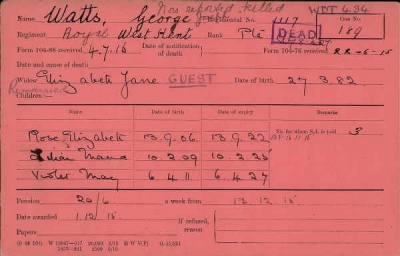 Now reported killed
Name Watts, George John Regimental No. 1117 WDT 4.34
Regiment Royal West Kent Rank Pte DEAD Case No. 189
Form 104-88 received 4.7.16 Date of notification of death Form 104-76 received 22-6-15
Date and cause of death
Widow Elizabeth Jane GUEST 27.3.82
Remarried
Children:
Name Date of birth Date of expiry
Rose Elizabeth 13.9.06. 13.9.22 No. for whom S.A. is paid 3
Lilian Maud 10.2.09 10.2.25
Violet May 6.4.11. 6.4.27
Pension 20/6 a week from 12.12.15
Date awarded 1.12.15 If refused, reason
Papers